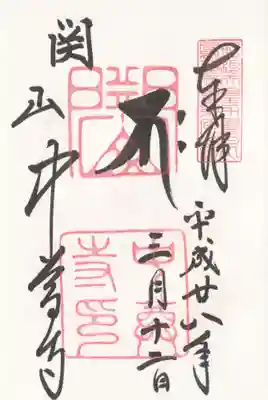 奉拝
平成廿八年
三月十二日
中尊
寺印
関山中尊寺